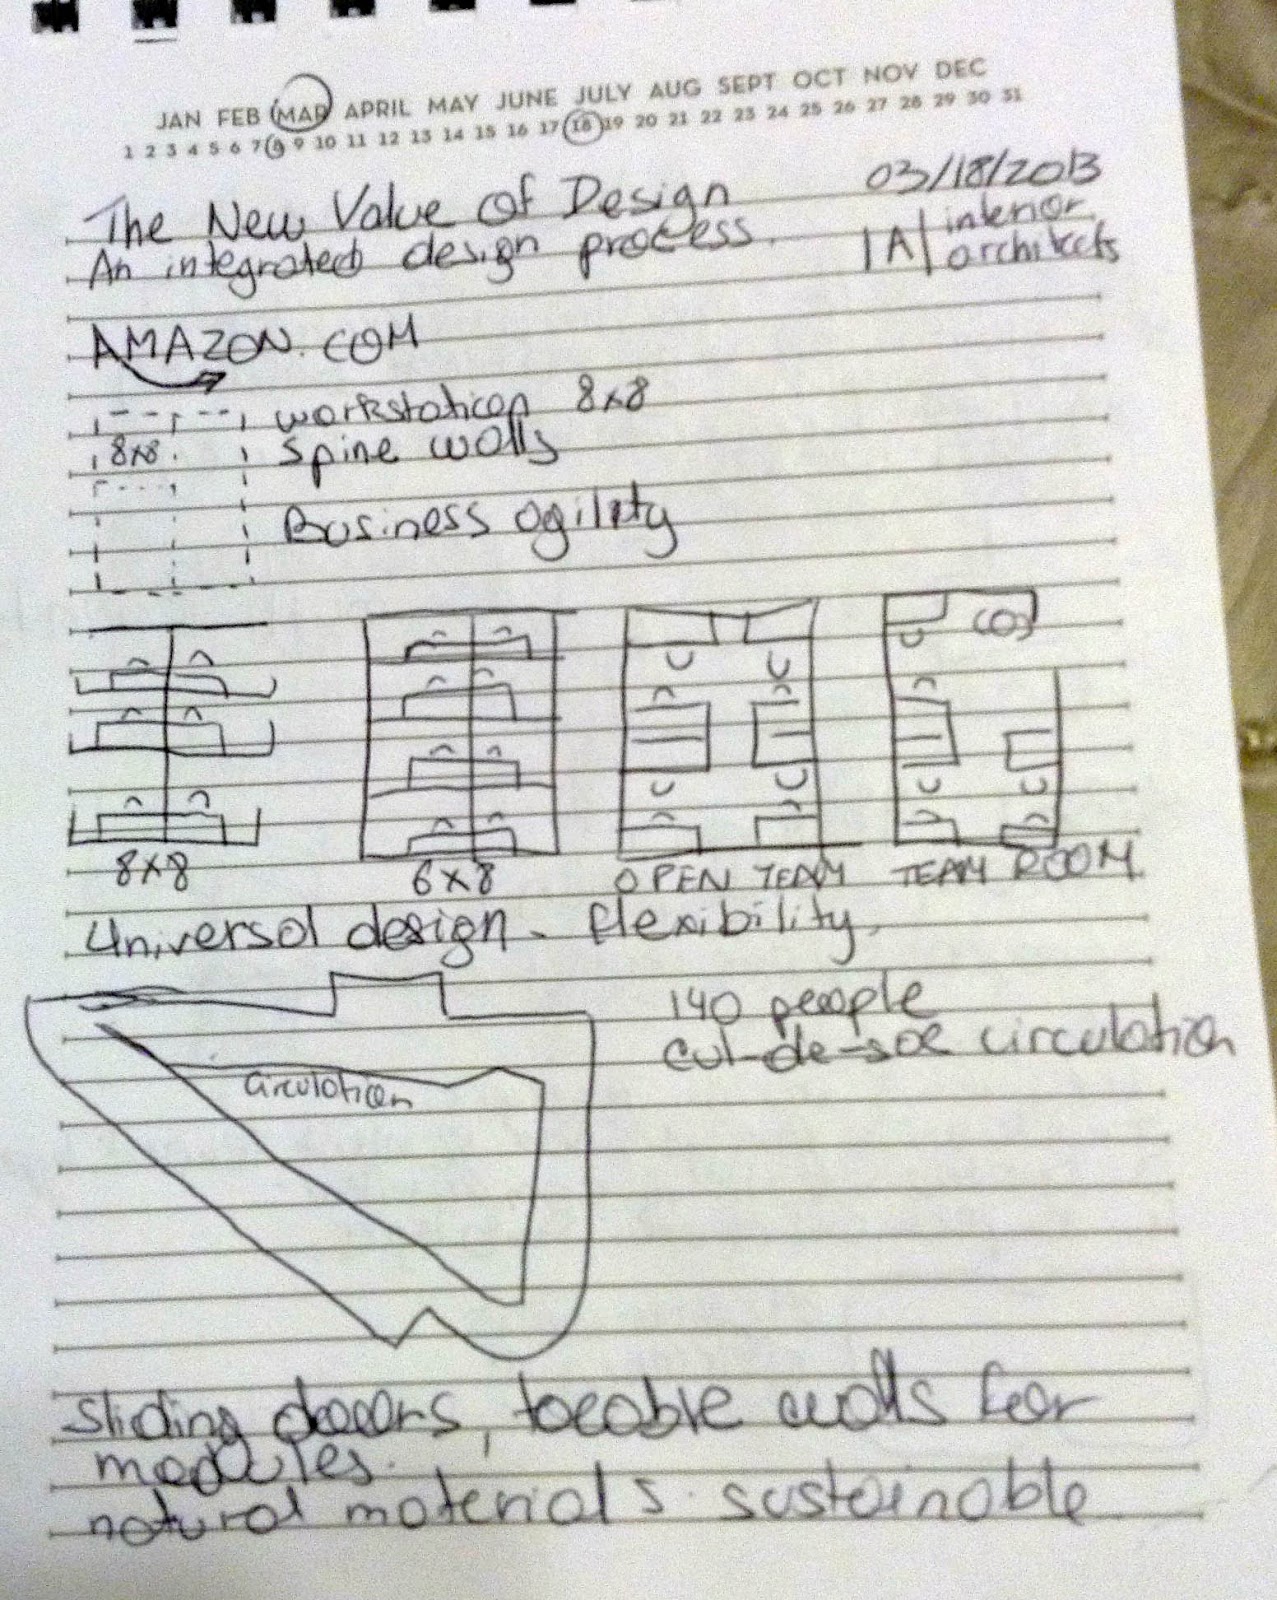 JAN FEB MAR APRIL MAY JUNE JULY AUG SEPT OCT NOV DEC
1 2 3 4 5 6 7 8 9 10 11 12 13 14 15 16 17 18 19 20 21 22 23 24 25 26 27 28 29 30 31
03/18/2013
The New Value of Design
An integrated design process.
|A| interior
architects
AMAZON.COM
workstation 8x8
8x8
spine walls
Business agility
8x8
6x8
OPEN TEAM
TEAM ROOM
Universal design - flexibility.
140 people
cul-de-sac circulation
circulation
Sliding doors, walls for
modules.
natural materials. sustainable